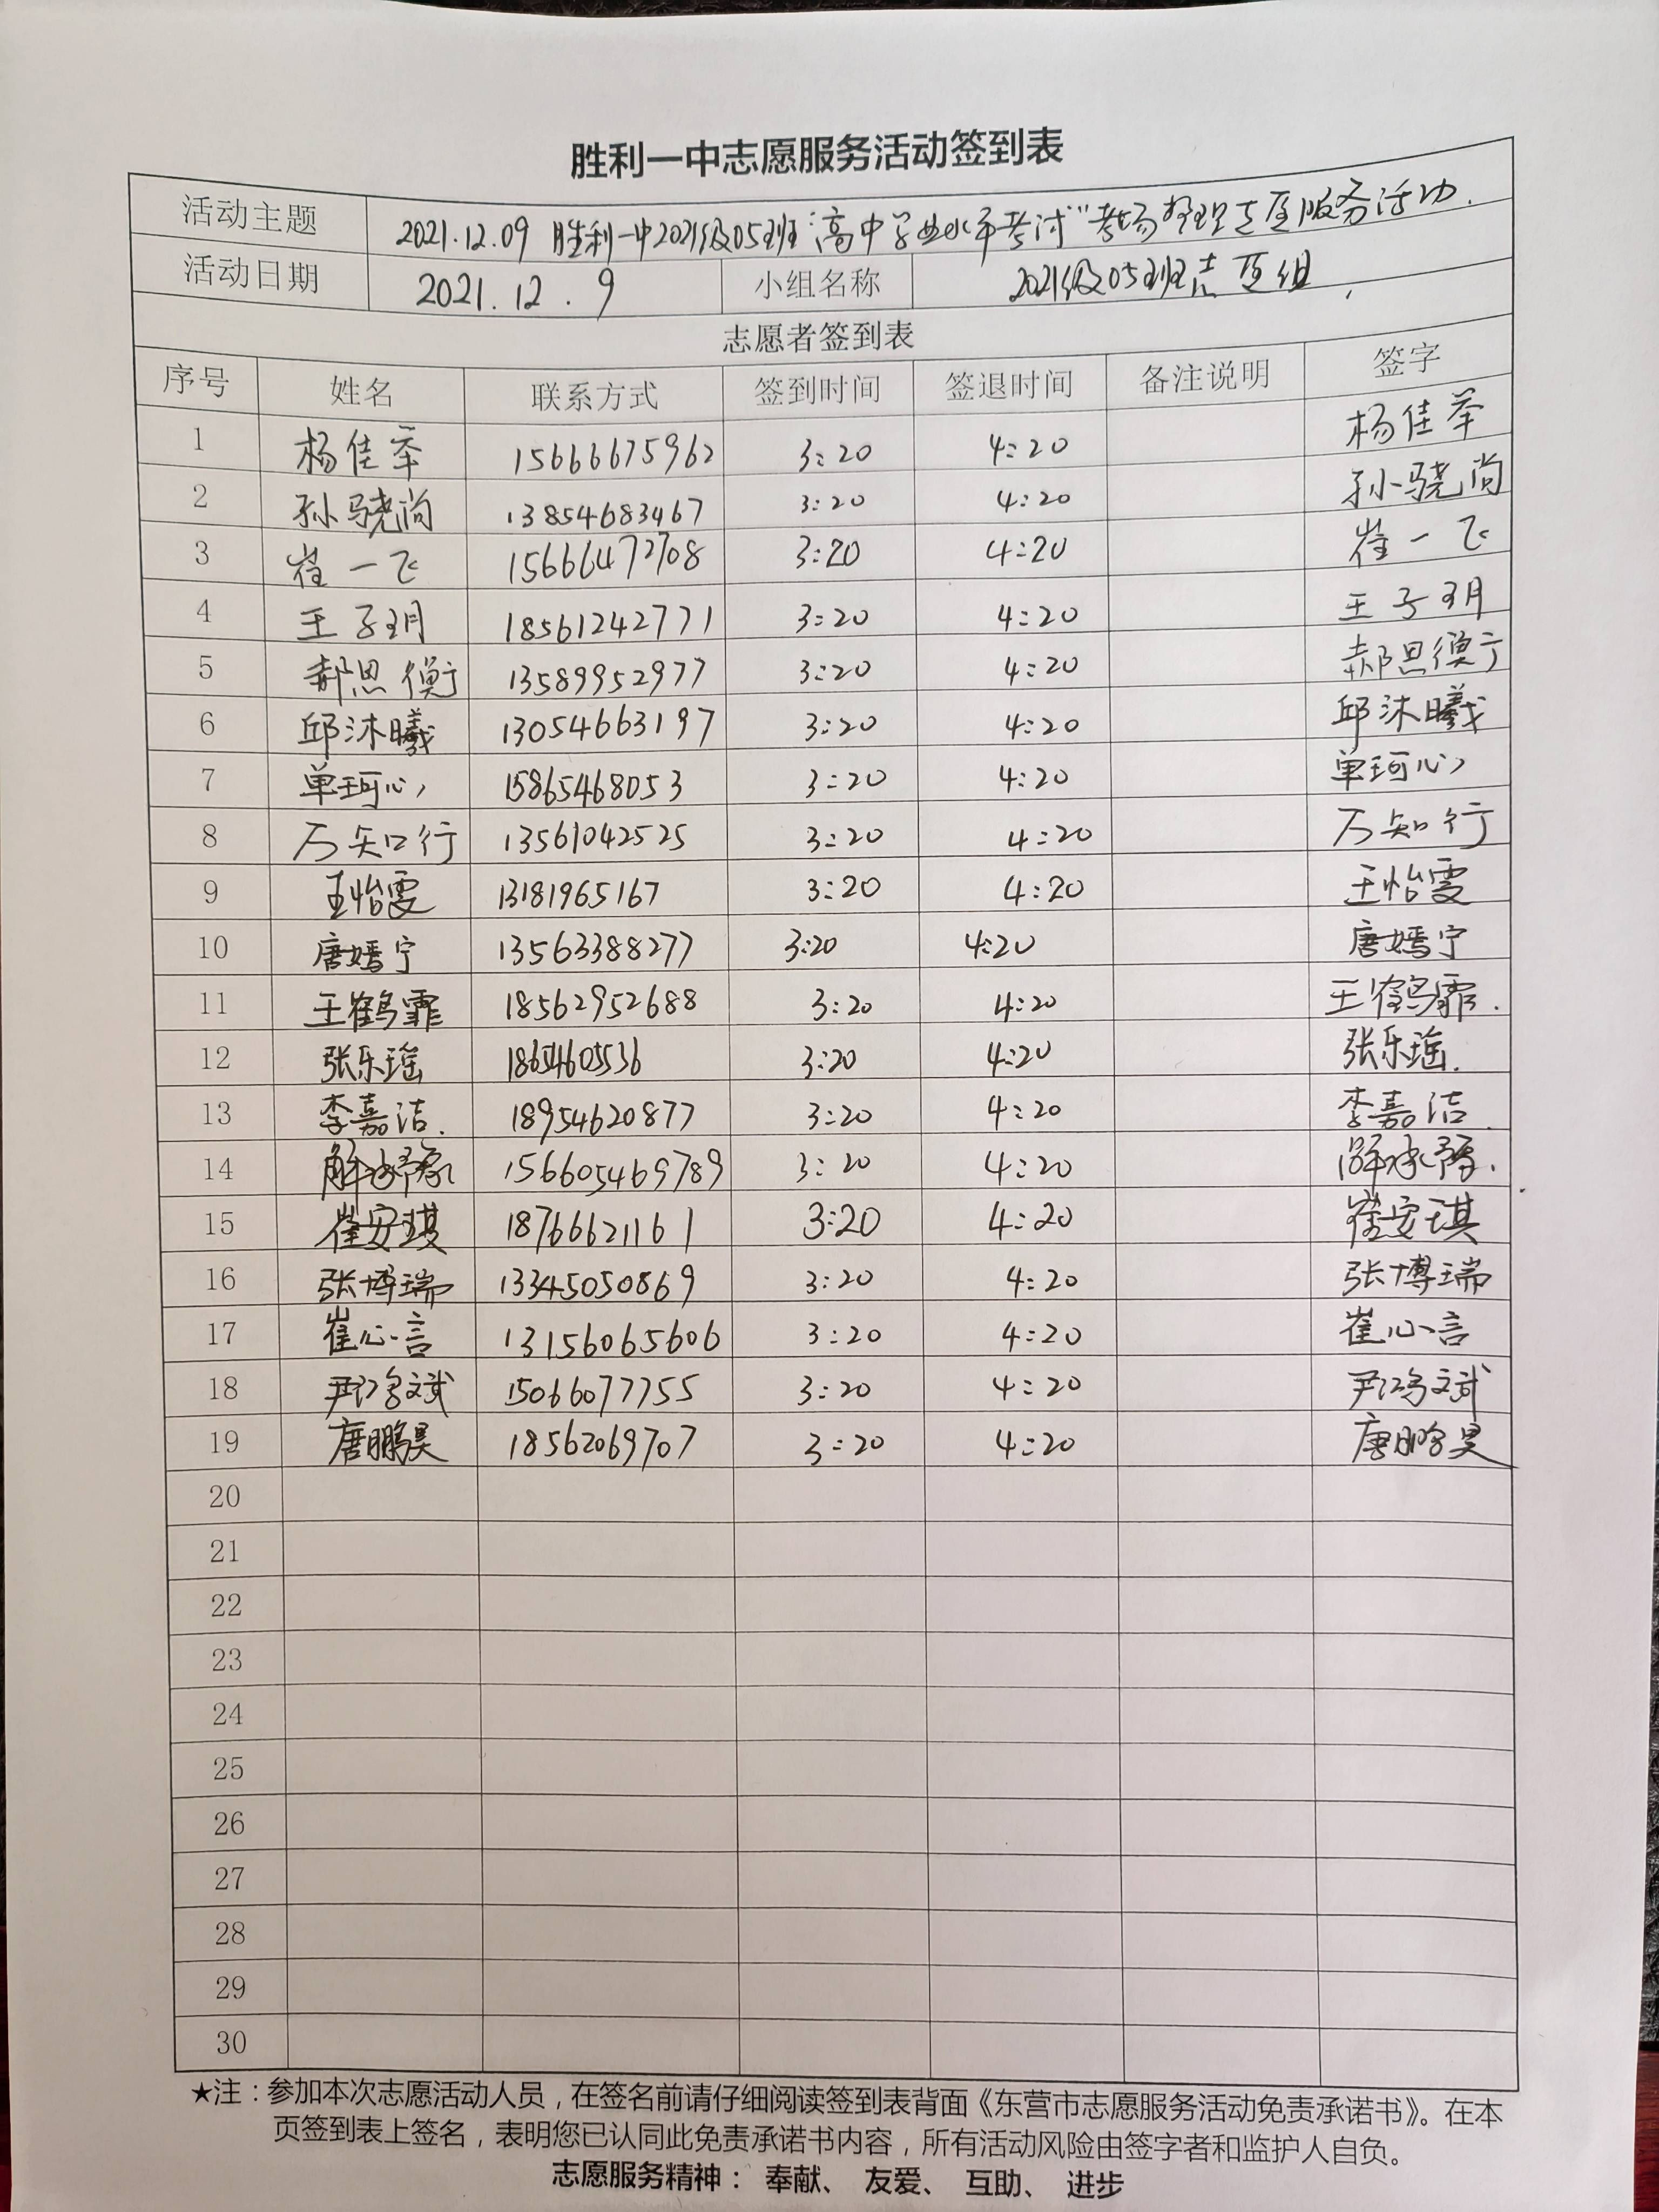 胜利一中志愿服务活动签到表
活动主题 2021.12.09 胜利一中2021级05班“高中学业水平考试”考场整理志愿服务活动.
活动日期 2021.12.9 小组名称 2021级05班志愿组
志愿者签到表
序号 姓名 联系方式 签到时间 签退时间 备注说明 签字
1 杨佳举 15666675962 3:20 4:20 杨佳举
2 孙骁尚 13854683467 3:20 4:20 孙骁尚
3 崔一飞 15666472708 3:20 4:20 崔一飞
4 王子玥 18561242771 3:20 4:20 王子玥
5 郝思衡 13589952977 3:20 4:20 郝思衡
6 邱沐曦 13054663197 3:20 4:20 邱沐曦
7 单珂心 15865468053 3:20 4:20 单珂心
8 万知行 13561042525 3:20 4:20 万知行
9 王怡雯 13181965167 3:20 4:20 王怡雯
10 唐嫣宁 13563388277 3:20 4:20 唐嫣宁
11 王鹤霏 18562952688 3:20 4:20 王鹤霏.
12 张乐瑶 18654605536 3:20 4:20 张乐瑶.
13 李嘉洁. 18954620877 3:20 4:20 李嘉洁.
14 156605469789 3:20 4:20
15 崔安琪 18766621161 3:20 4:20 崔安琪
16 张博瑞 13345050869 3:20 4:20 张博瑞
17 崔心言 13156065606 3:20 4:20 崔心言
18 尹鸿斌 15066077755 3:20 4:20 尹鸿斌
19 唐鹏昊 18562069707 3:20 4:20 唐鹏昊
20
21
22
23
24
25
26
27
28
29
30
★注：参加本次志愿活动人员，在签名前请仔细阅读签到表背面《东营市志愿服务活动免责承诺书》。在本
页签到表上签名，表明您已认同此免责承诺书内容，所有活动风险由签字者和监护人自负。
志愿服务精神： 奉献、 友爱、 互助、 进步